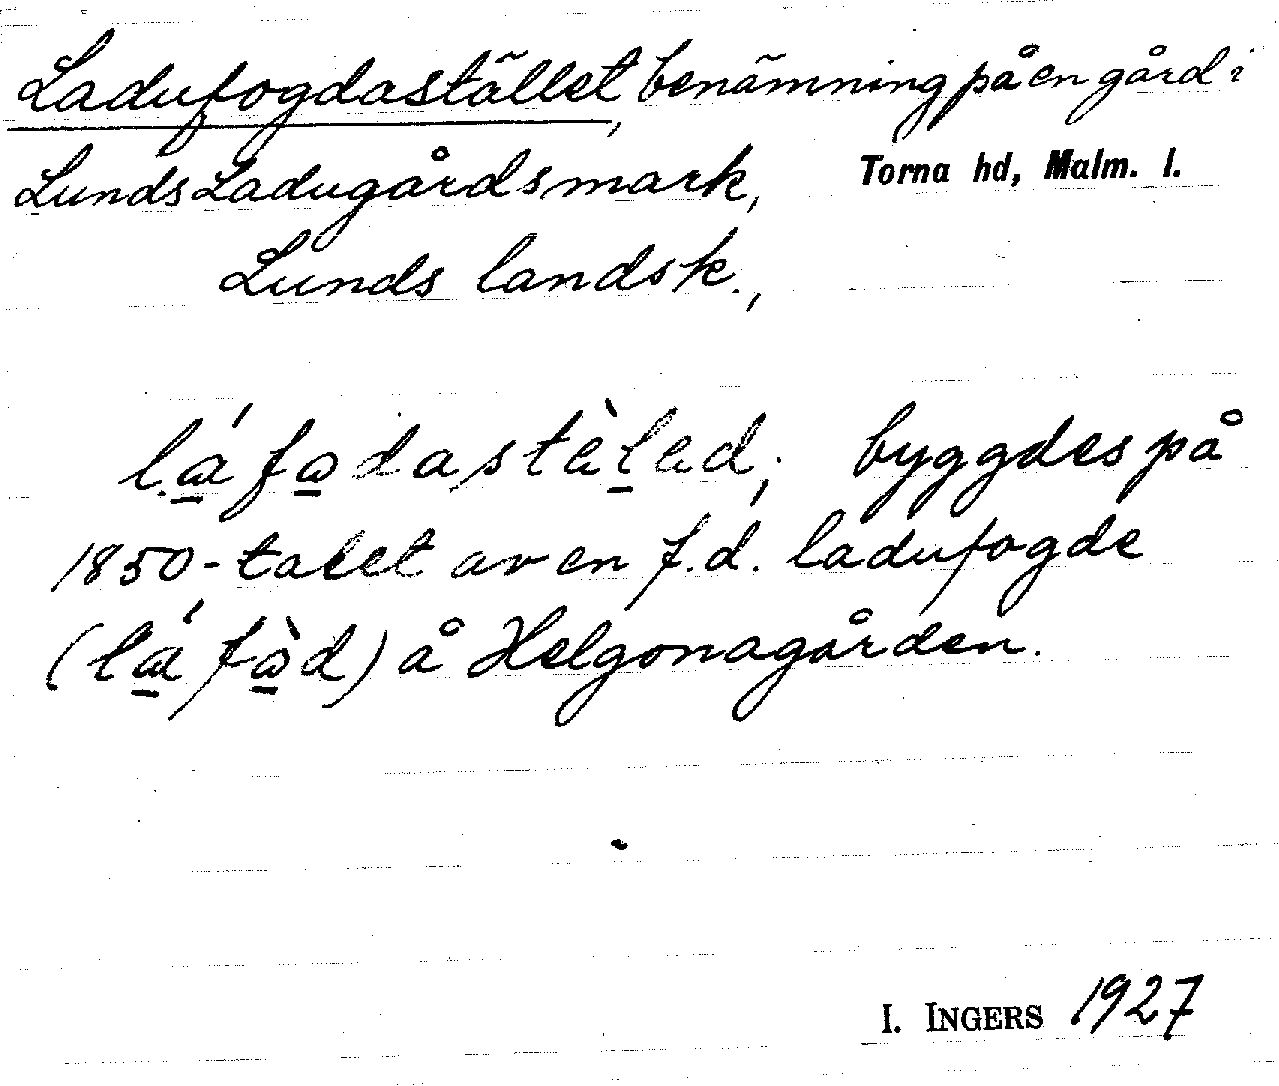 Ladufogdastället, benämning på en gård i
Lunds Ladugårdsmark, Torna hd, Malm. l.
Lunds landsk.,
lá̱fo̱dastèḻad; byggdes på
1850-talet av en f.d. ladufogde
(lá̱fò̱d) å Helgonagården.
I. INGERS 1927